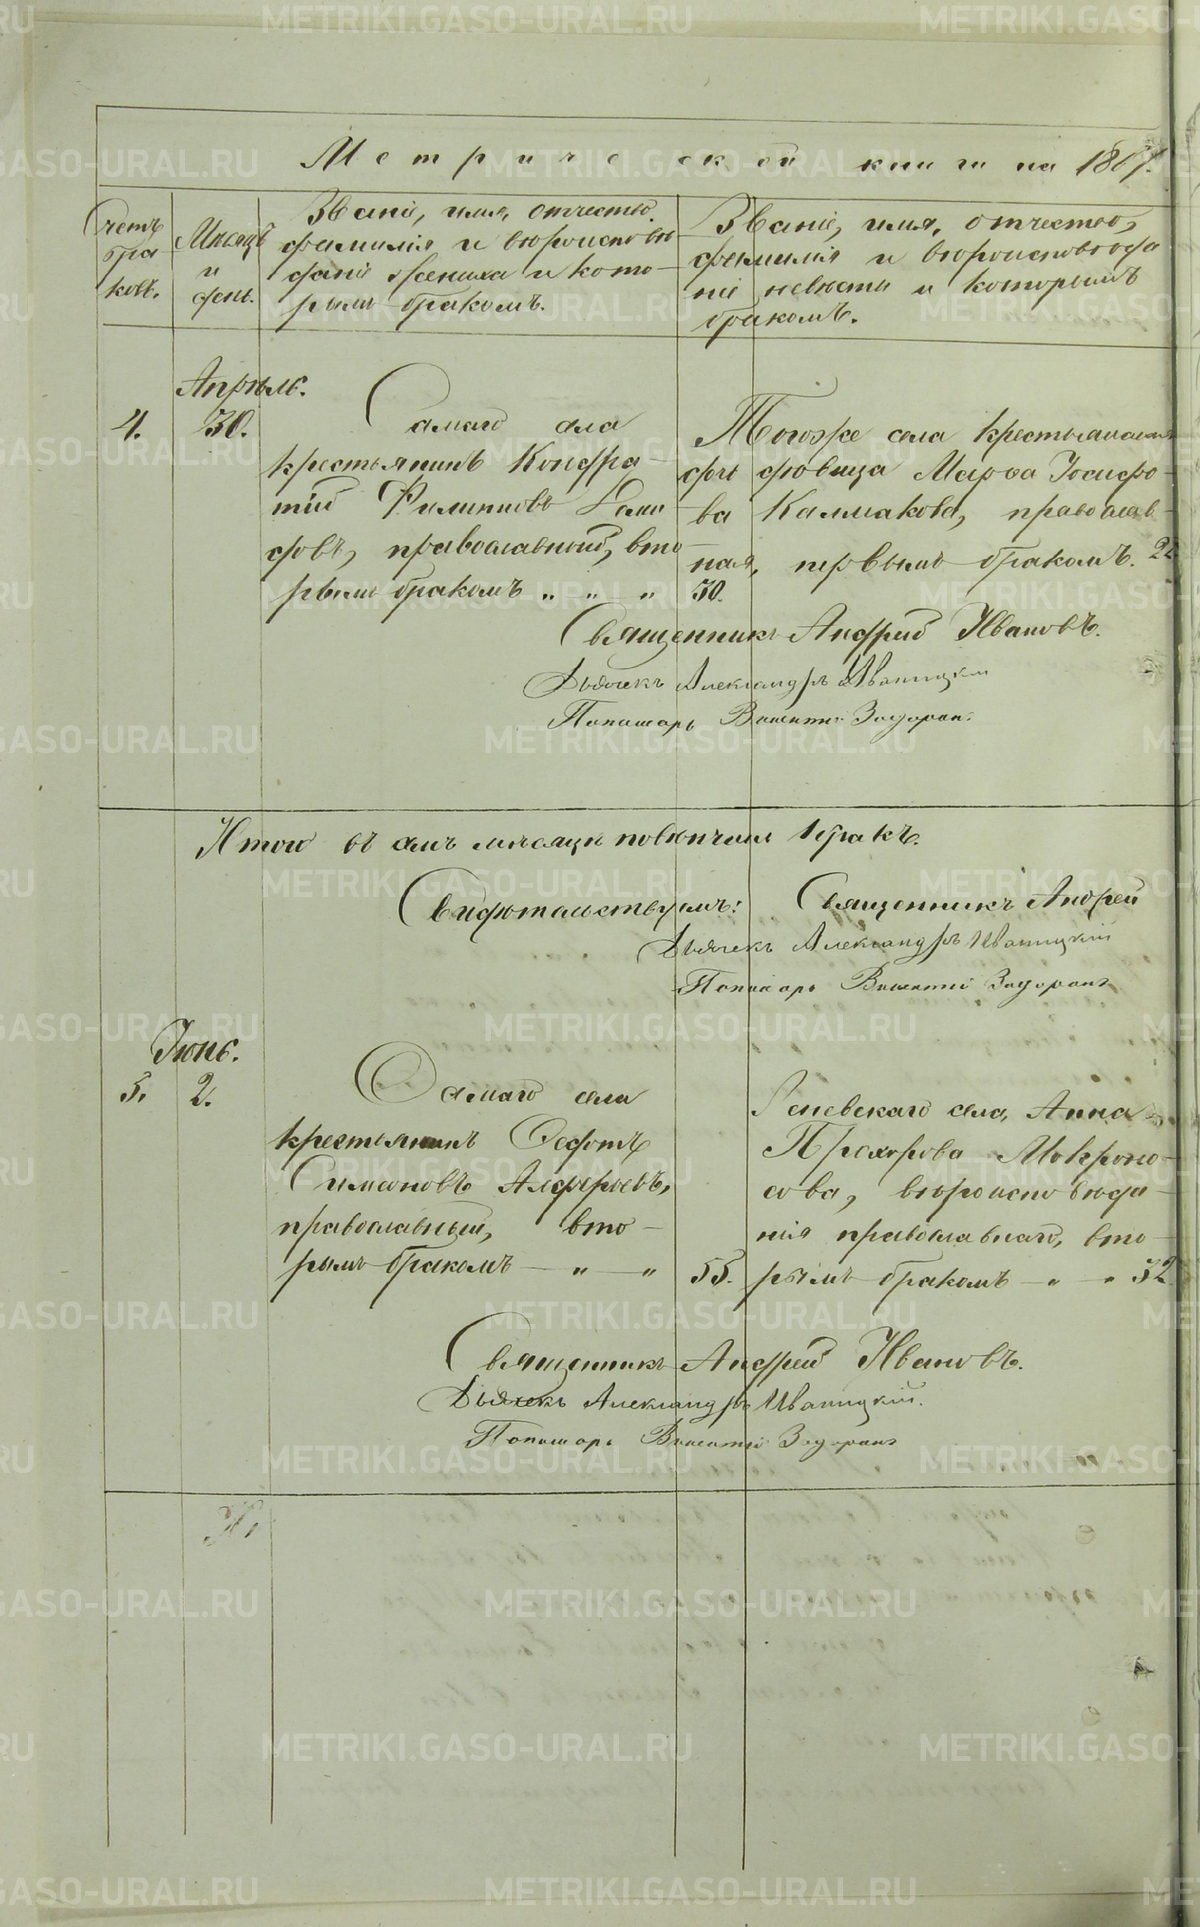 Метрической книги на 1867.
Счетъ браковъ.
Мѣсяцъ и день.
Званіе, имя, отчество,
фамилія и вѣроисповѣ-
даніе жениха и кото-
рымъ бракомъ.
Званіе, имя, отчество,
фамилія и вѣроисповѣда
ніе невѣсты и которымъ
бракомъ.
Апрѣль.
4. 30.
Самаго села
крестьянинъ Кондра-
тій Филиповъ
довъ, православный, вто-
рымъ бракомъ „ „ „ 50.
Тогоже села крестьянская
дѣвица Марѳа Іосифо-
ва Калмакова, православ-
ная, первымъ бракомъ. 22
Священникъ Андрей Ивановъ.
Дьячекъ Александръ Иваницкій
Пономарь Викентій
Итого въ семъ мѣсяцѣ повѣнчанъ 1 бракъ.
Свидѣтельствуемъ: Священникъ Андрей
Дьячекъ Александръ Иваницкій
Пономарь Викентій
Іюнь.
5. 2.
Самаго села
крестьянинъ Ѳедотъ
Симеоновъ Алферьевъ,
православный, вто-
рымъ бракомъ — „ — „ 55.
села, Анна
Прохорова Мокроно-
сова, вѣроисповѣда-
нія православнаго, вто-
рымъ бракомъ — „ — „ 52
Священникъ Андрей Ивановъ.
Дьячекъ Александръ Иваницкій.
Пономарь Викентій
METRIKI.GASO-URAL.RU